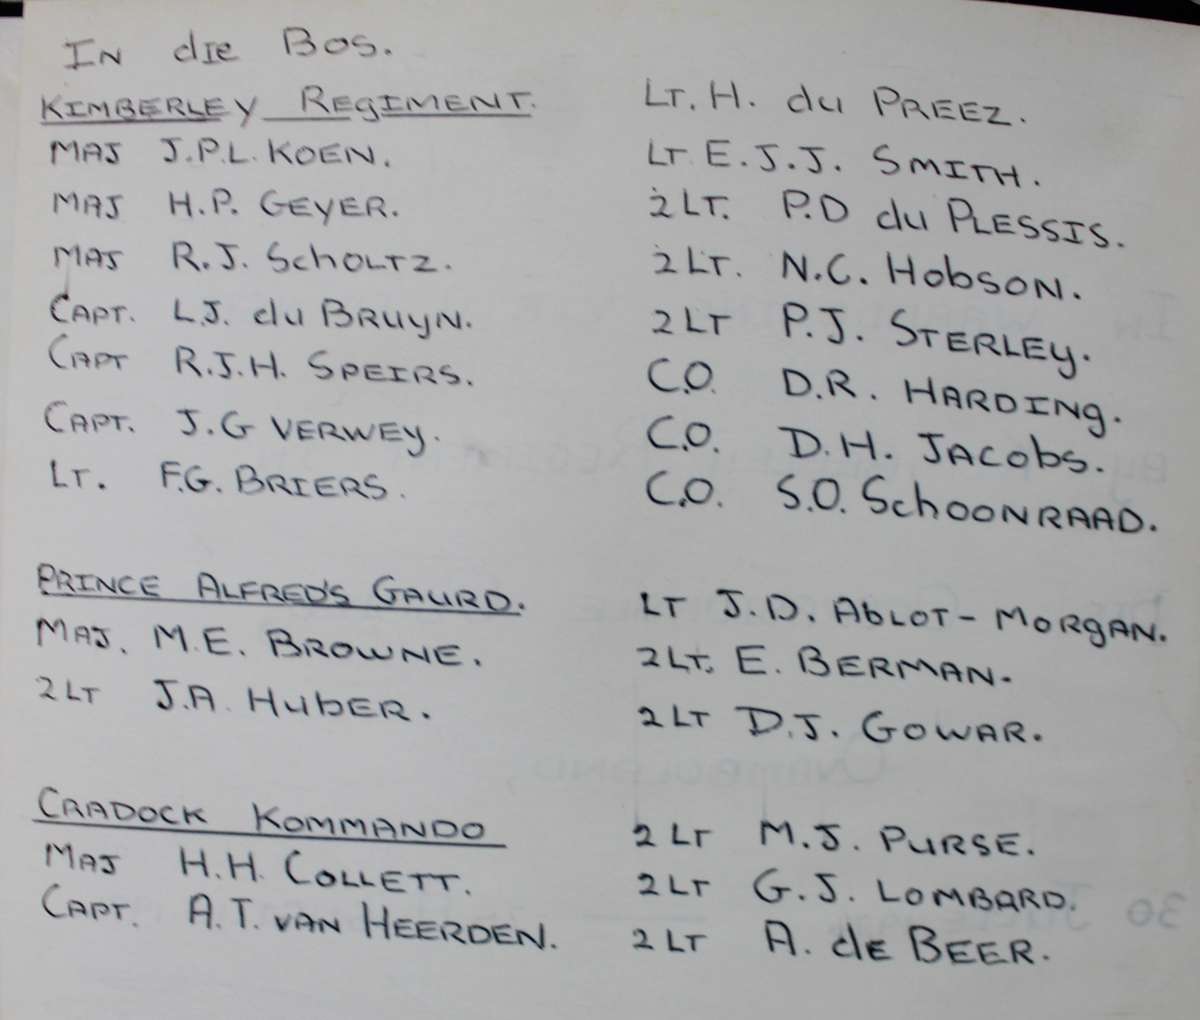 In die Bos.
KIMBERLEY REGIMENT.
MAJ J.P.L. KOEN.
MAJ H.P. GEYER.
MAJ R.J. SCHOLTZ.
CAPT. L.J. du BRUYN.
CAPT R.J.H. SPEIRS.
CAPT. J.G VERWEY.
LT. F.G. BRIERS.
LT. H. du PREEZ.
LT. E.J.J. SMITH.
2LT. P.D du PLESSIS.
2LT. N.C. HOBSON.
2LT P.J. STERLEY.
C.O. D.R. HARDING.
C.O. D.H. JACOBS.
C.O. S.O. SCHOONRAAD.
PRINCE ALFRED'S GAURD.
MAJ. M.E. BROWNE.
2LT J.A. HUBER.
LT J.D. ABLOT-MORGAN.
2LT. E. BERMAN.
2LT D.J. GOWAR.
CRADOCK KOMMANDO
MAJ H.H. COLLETT.
CAPT. A.T. VAN HEERDEN.
2LT M.J. PURSE.
2LT G.J. LOMBARD.
2LT A. de BEER.